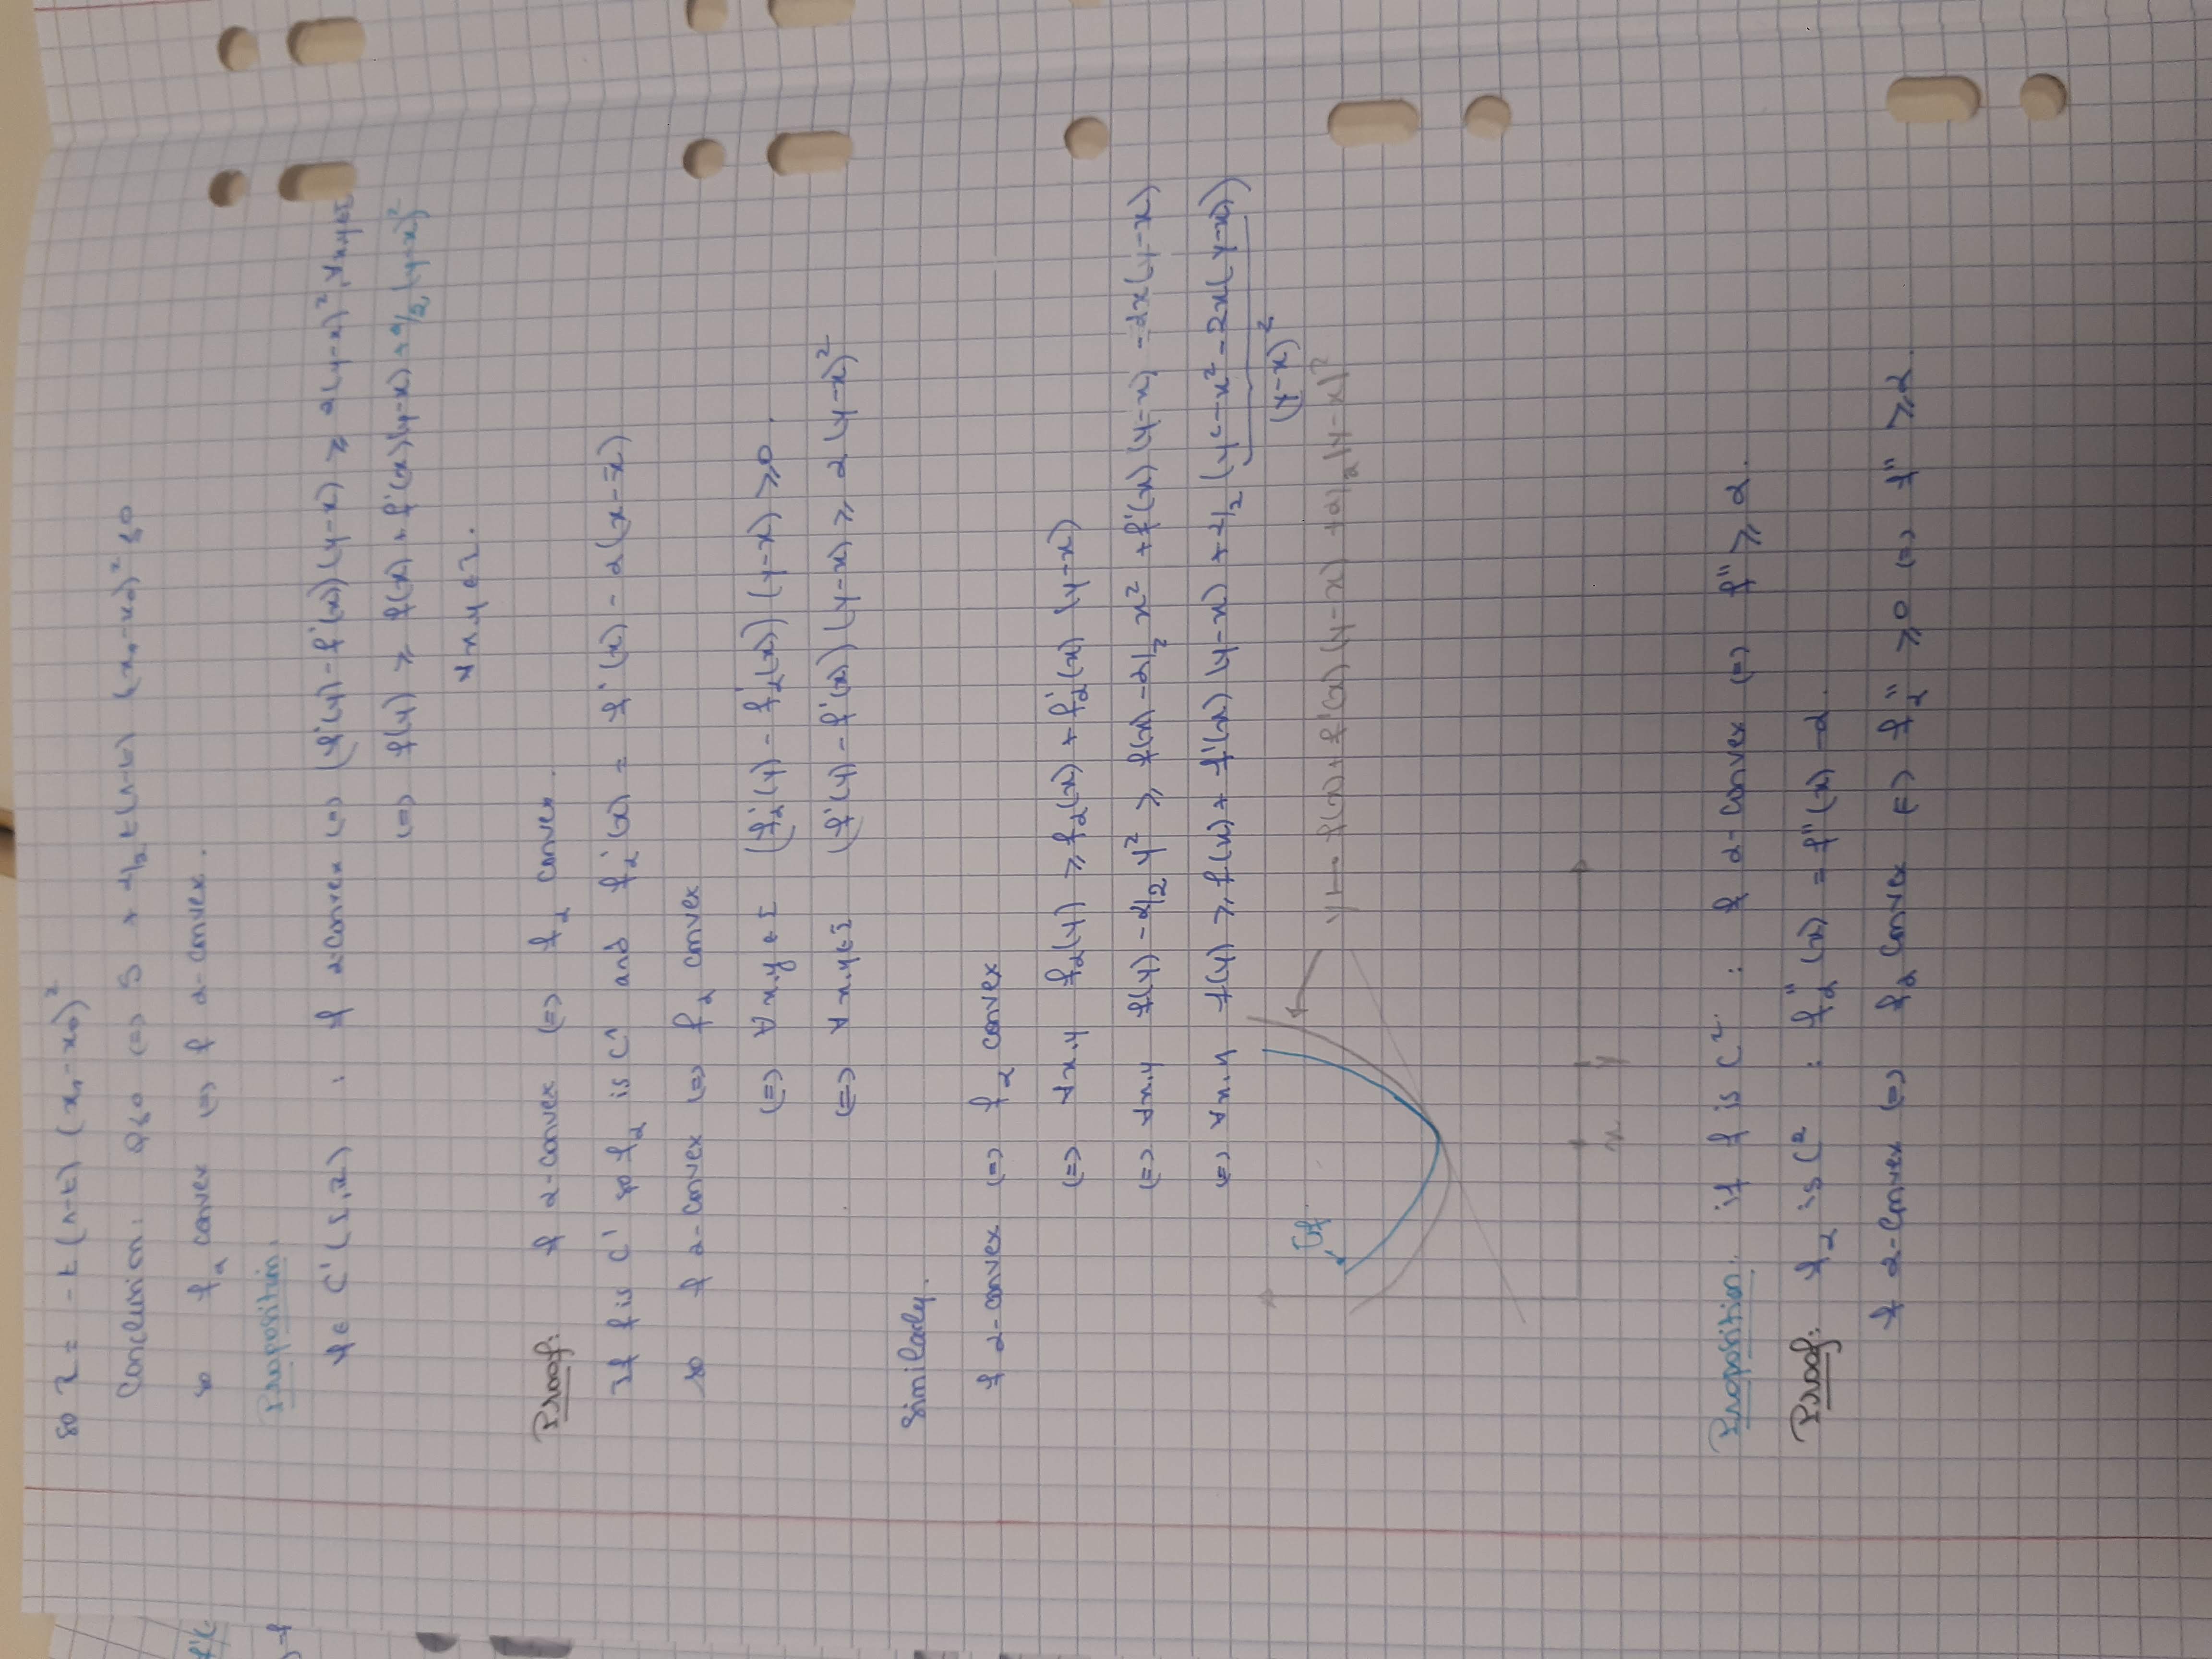 so R = -t(1-t) (x₁-x₀)²
Conclusion: Q≤0 (=) S + α/2 t(1-t) (x₁-x₀)² ≤0
so f_α convex (=) f α-convex.
Proposition.
f∈ C¹(I,R) : f α-convex (=) (f'(y) - f'(x))(y-x) ≥ α(y-x)², ∀x,y∈I
(=) f(y) ≥ f(x) + f'(x)(y-x) + α/2 (y-x)²
∀x,y ∈ I.
Proof: f α-convex (=) f_α convex.
If f is C¹ so f_α is C¹ and f_α'(x) = f'(x) - α(x-x̄)
so f α-convex (=) f_α convex
(=) ∀x,y ∈ I (f_α'(y) - f_α'(x)) (y-x) ≥0.
(=) ∀x,y∈I (f'(y) - f'(x)) (y-x) ≥ α(y-x)²
Similarly.
f α-convex (=) f_α convex
(=) ∀x,y f_α(y) ≥ f_α(x) + f_α'(x) (y-x)
(=) ∀x,y f(y) - α/2 y² ≥ f(x) - α/2 x² + f'(x) (y-x) - αx(y-x)
(=) ∀x,y f(y) ≥ f(x) + f'(x) (y-x) + α/2 (y² - x² - 2x(y-x))
(y-x)²
Gf
y ↦ f(x) + f'(x) (y-x) + α/2 |y-x|²
x y
Proposition. if f is C² : f α-convex (=) f'' ≥ α.
Proof: f_α is C² : f_α''(x) = f''(x) - α.
f α-convex (=) f_α convex (=) f_α'' ≥0 (=) f'' ≥ α.